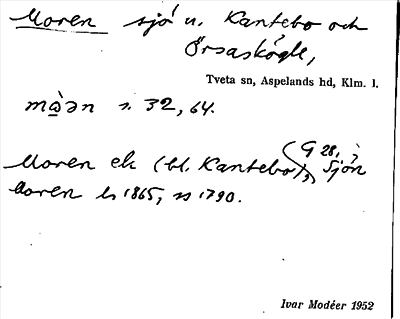 Moren sjö n. Kantebo och
Örsaskögle,
Tveta sn, Aspelands hd, Klm. l.
mɑ̀ɔn s. 32, 64.
Moren ek (bl. Kantebo), (G 28, Sjön
Moren ls 1865, ss 1790.
Ivar Modéer 1952